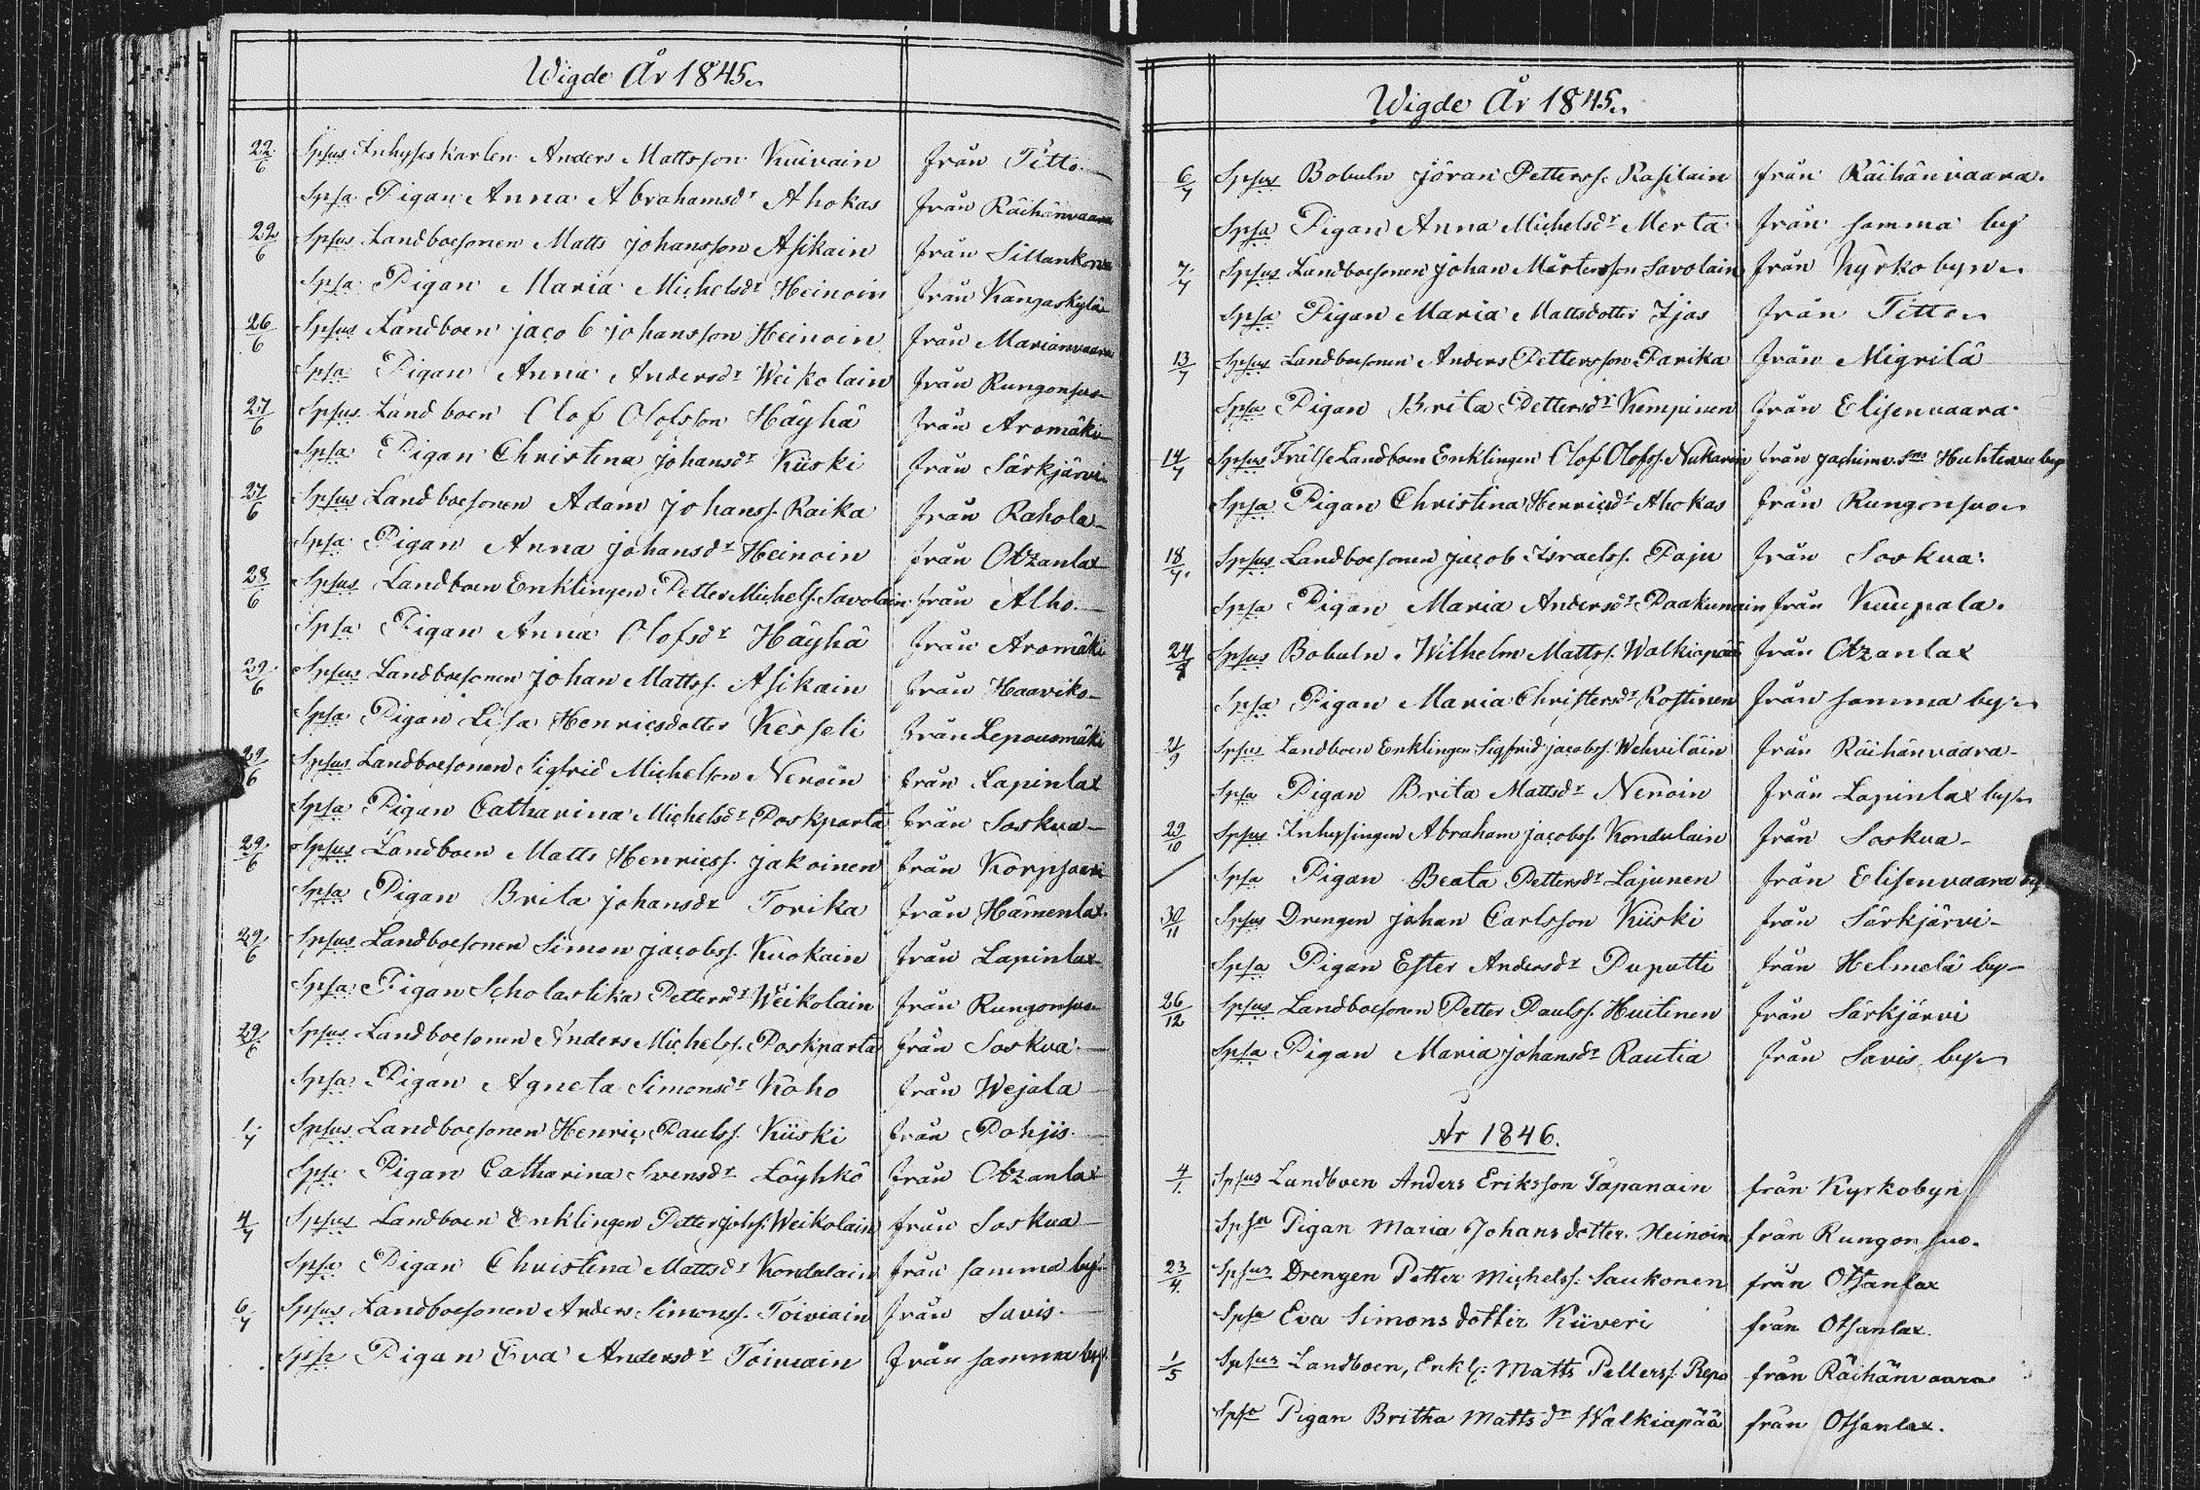 Wigde År 1845.
22/6 Spsus Inhyseskarlen Anders Mattsson Kuivain från Titto
Spsa Pigan Anna Abrahamsdr Ahokas från Räihänvaara
22/6 Spsus Landboesonen Matts Johansson Asikain från Sillankorva
Spsa Pigan Maria Michelsdr Heinoin från Kangaskylä
26/6 Spsus Landboen Jacob Johansson Heinoin från Marianvaara
Spsa Pigan Anna Andersdr Weikolain från Rungonsuo
27/6 Spsus Landboen Olof Olofsson Häyhä från Aromäki
Spsa Pigan Christina Johansdr Kiiski från Särkjärvi
27/6 Spsus Landboesonen Adam Johanss. Raika från Rahola
Spsa Pigan Anna Johansdr Heinoin från Otzanlax
28/6 Spsus Landboen Enklingen Petter Michels. Savolain från Alho
Spsa Pigan Anna Olofsdr Häyhä från Aromäki
29/6 Spsus Landboesonen Johan Mattss. Asikain från Haaviko
Spsa Pigan Lisa Henricsdotter Kesseli från Lepousmäki
29/6 Spsus Landboesonen Sigfrid Michelson Neroin från Lapinlax
Spsa Pigan Catharina Michelsdr Poskparta från Soskua
29/6 Spsus Landboen Matts Henricss. Jakoinen från Korpsaari
Spsa Pigan Brita Johansdr Torika från Hämenlax
29/6 Spsus Landboesonen Simon Jacobss. Kuokain från Lapinlax
Spsa Pigan Scholastika Pettersdr Weikolain från Rungonsuo
29/6 Spsus Landboesonen Anders Michelss. Poskparta från Soskua
Spsa Pigan Agneta Simonsdr Koho från Wejala
1/7 Spsus Landboesonen Henric Paulss. Kiiski från Pohjis
Spsa Pigan Catharina Svensdr Löyhkö från Otzanlax
4/7 Spsus Landboen Enklingen Petter Johss. Weikolain från Soskua
Spsa Pigan Christina Mattsdr Kondulain från samma by
6/7 Spsus Landboesonen Anders Simonss. Toiviain från Savis
Spsa Pigan Eva Andersdr Toiviain från samma by
Wigde År 1845.
6/7 Spsus Bobuln Jöran Petterss. Rasilain från Räihänvaara.
Spsa Pigan Anna Michelsdr Merta från samma by
7/7 Spsus Landboesonen Johan Mårtensson Savolain från Kyrkobyn
Spsa Pigan Maria Mattsdotter Ijas från Titto
13/7 Spsus Landboesonen Anders Pettersson Parika från Migrilä
Spsa Pigan Brita Pettersdr Kempinen från Elisenvaara
14/7 Spsus Frälse Landboen Enklingen Olof Olofss. Nukarin från Huhtervu by
Spsa Pigan Christina Henricsdr Ahokas från Rungonsuo
18/7. Spsus Landboesonen Jacob Israelss. Paju från Soskua
Spsa Pigan Maria Andersdr Paakunain från Kumpala.
24/8 Spsus Bobuln Wilhelm Mattss. Walkiapää från Otzanlax
Spsa Pigan Maria Christersdr Rostinen från samma by
21/9 Spsus Landboen Enklingen Sigfrid Jacobss. Wehviläin från Räihänvaara
Spsa Pigan Brita Mattsdr Neroin från Lapinlax by
29/10 Spsus Inhysingen Abraham Jacobss. Kondulain från Soskua
Spsa Pigan Beata Pettersdr Lajunen från Elisenvaara by
30/11 Spsus Drengen Johan Carlsson Kiiski från Särkjärvi
Spsa Pigan Ester Andersdr Puputti från Helmelä by
26/12 Spsus Landboesonen Petter Paulss. Huitinen från Särkjärvi
Spsa Pigan Maria Johansdr Rautia från Savis by
År 1846.
4/1. Spsus Landboen Anders Eriksson Tapanain från Kyrkobyn
Spsa Pigan Maria Johansdotter Heinoin från Rungonsuo.
23/4. Spsus Drengen Petter Michelss. Saukonen från Otsanlax
Spsa Eva Simonsdotter Kiiveri från Otsanlax.
1/5 Spsus Landboen, Enkl: Matts Petterss. Repo från Räihänvaara
Spsa Pigan Britha Mattsdr Walkiapää från Otsanlax.